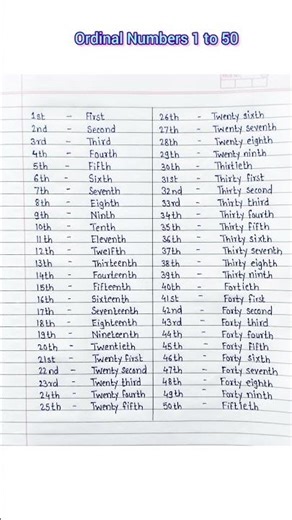 Ordinal Numbers 1 to 50
1st - First
2nd - Second
3rd - Third
4th - Fourth
5th - Fifth
6th - Sixth
7th - Seventh
8th - Eighth
9th - Ninth
10th - Tenth
11th - Eleventh
12th - Twelfth
13th - Thirteenth
14th - Fourteenth
15th - Fifteenth
16th - Sixteenth
17th - Seventeenth
18th - Eighteenth
19th - Nineteenth
20th - Twentieth
21st - Twenty first
22nd - Twenty second
23rd - Twenty third
24th - Twenty fourth
25th - Twenty fifth
26th - Twenty sixth
27th - Twenty seventh
28th - Twenty eighth
29th - Twenty ninth
30th - Thirtieth
31st - Thirty first
32nd - Thirty second
33rd - Thirty third
34th - Thirty fourth
35th - Thirty fifth
36th - Thirty sixth
37th - Thirty seventh
38th - Thirty eighth
39th - Thirty ninth
40th - Fortieth
41st - Forty first
42nd - Forty second
43rd - Forty third
44th - Forty fourth
45th - Forty fifth
46th - Forty sixth
47th - Forty seventh
48th - Forty eighth
49th - Forty ninth
50th - Fiftieth